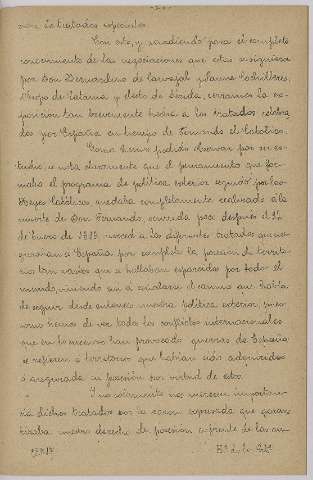 nen los tratados expresados.
Con esto, y acudiendo para el completo
conocimiento de las negociaciones que estos originaron
por Don Bernardino de Carvajal y Juana Bachilleres,
Obispo de Catania y electo de Lérida, cerramos la ex-
posicion tan brevemente hecha de los tratados celebra-
dos por España en tiempo de Fernando el Católico.
Como hemos podido observar por su es-
tudio, se nota claramente que el pensamiento que for-
maba el programa de política exterior seguido por los
Reyes Católicos quedaba completamente realizado a la
muerte de Don Fernando, ocurrida poco despues el 23
de Enero de 1516, merced a los diferentes tratados que ase-
guraron a España por completo la posesion de territo-
rios tan varios que se hallaban esparcidos por todo el
mundo, viniendo asi a señalarse el camino que habia
de seguir desde entonces nuestra política exterior, pues
como hemos de ver todos los conflictos internacionales
que en lo sucesivo han provocado guerras de España
se refieren a territorios que habian sido adquiridos
ó asegurada su posesion por virtud de estos.
Y no solamente nos merece importan-
cia dichos tratados por la razon expresada que garan-
tizaba nuestro derecho de posesion enfrente de las am-